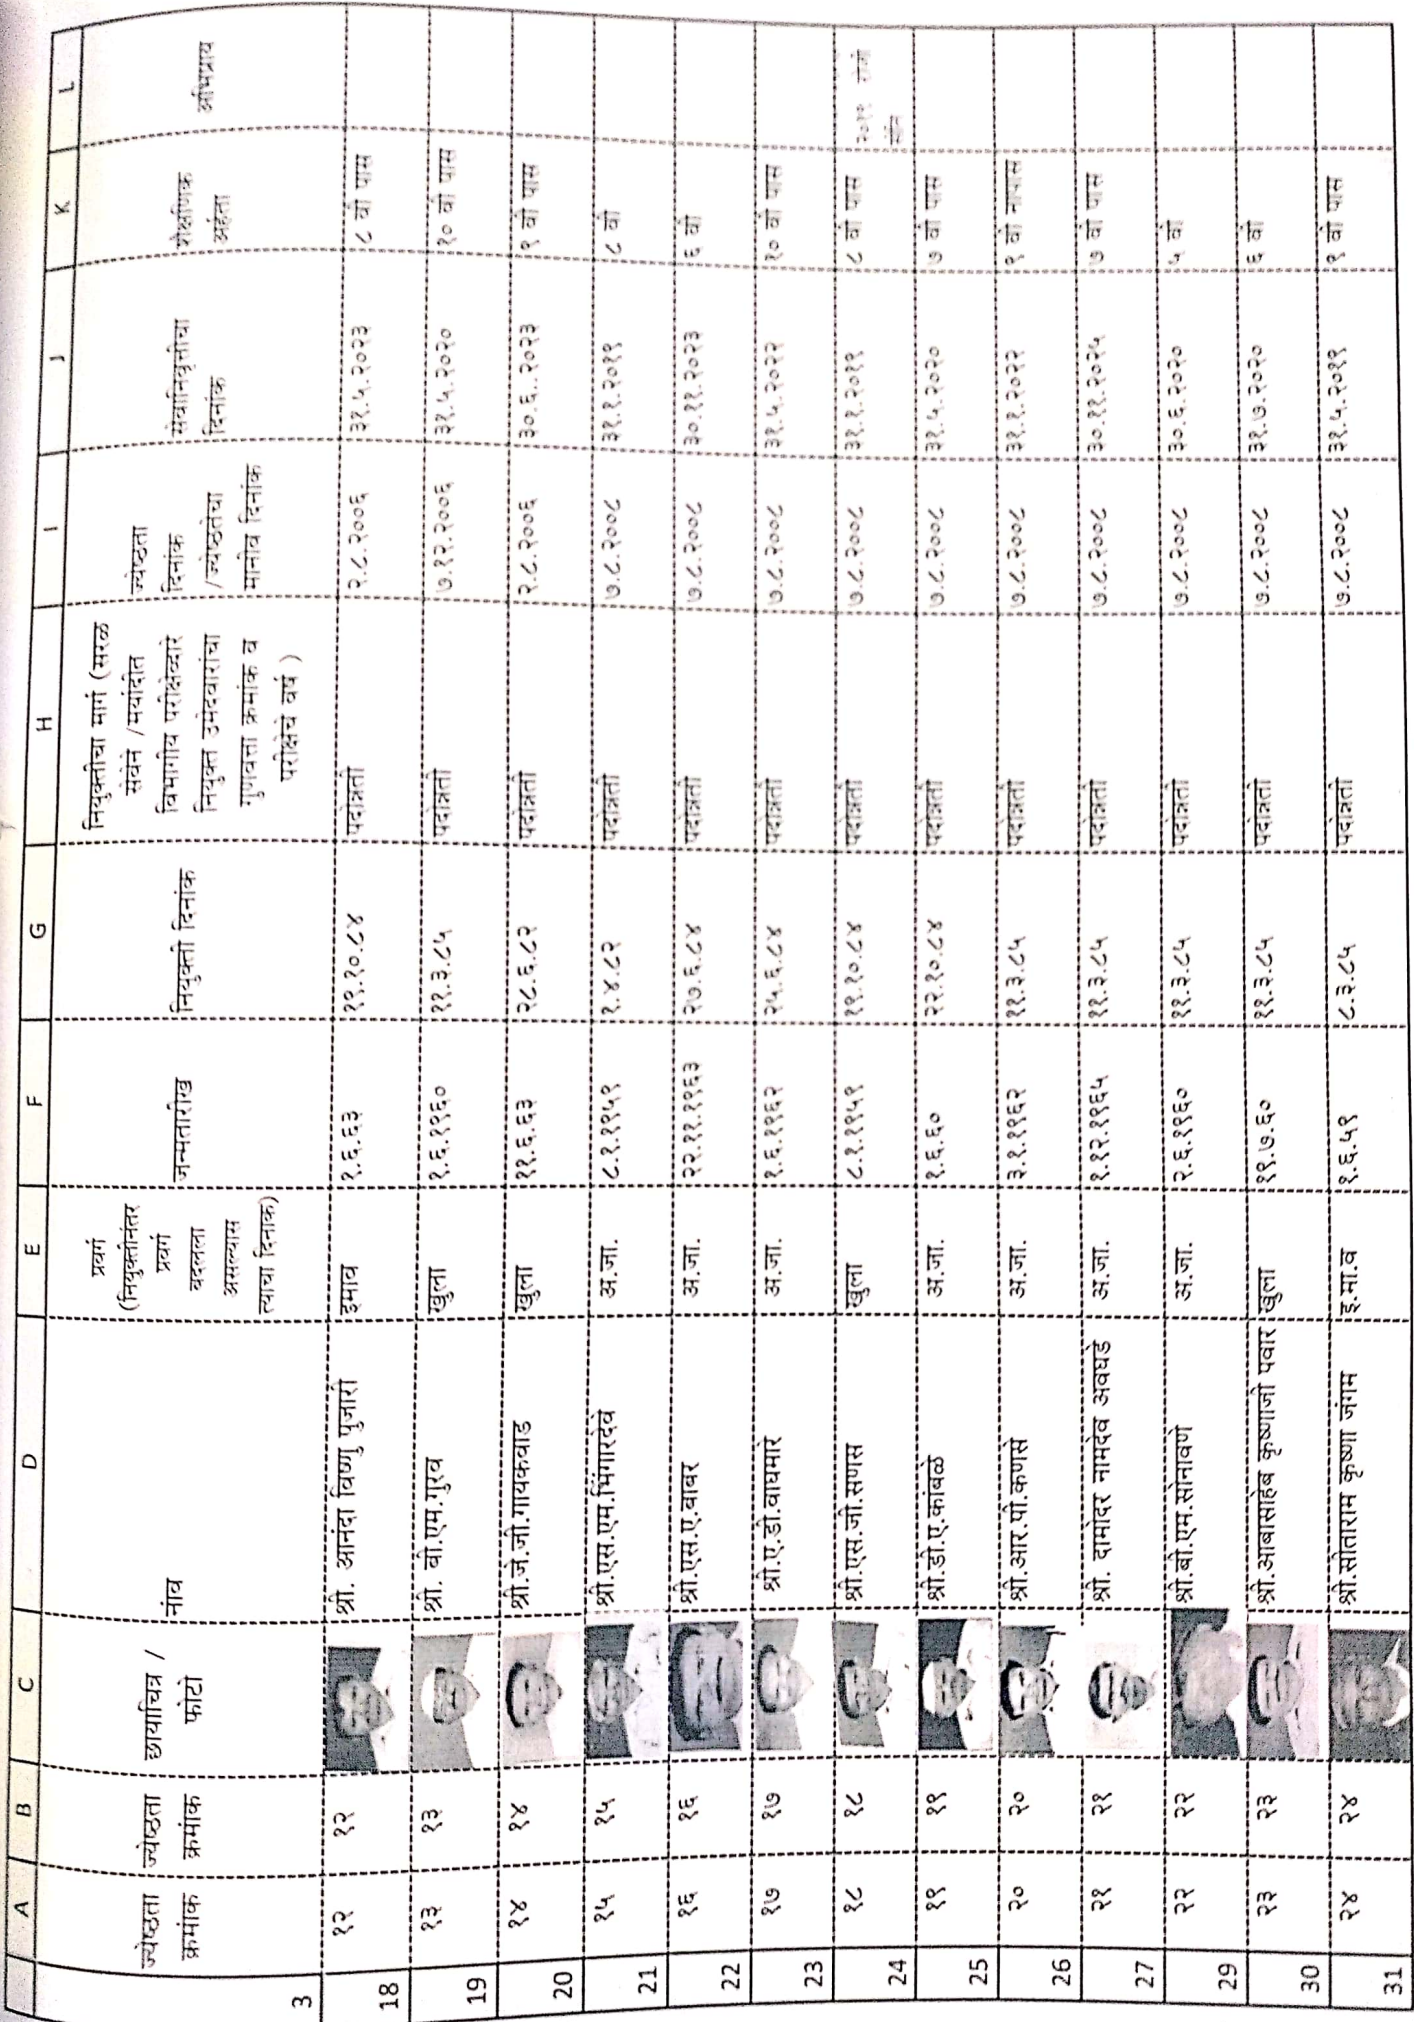 A B C D E F G H I J K L
3 ज्येष्ठता क्रमांक ज्येष्ठता क्रमांक छायाचित्र / फोटो नांव प्रवर्ग (नियुक्तीनंतर प्रवर्ग बदलला असल्यास त्याचा दिनांक) जन्मतारीख नियुक्ती दिनांक नियुक्तीचा मार्ग (सरळ सेवेने /मर्यादीत विभागीय परीक्षेव्दारे नियुक्त उमेदवारांचा गुणवत्ता क्रमांक व परीक्षेचे वर्ष ) ज्येष्ठता दिनांक /ज्येष्ठतेचा मानीव दिनांक सेवानिवृत्तीचा दिनांक शैक्षणिक अर्हता अभिप्राय
18 १२ १२ श्री. आनंदा विष्णु पुजारी इमाव १.६.६३ १९.१०.८४ पदोन्नती २.८.२००६ ३१.५.२०२३ ८ वी पास
19 १३ १३ श्री. बी.एम.गुरव खुला १.६.१९६० ११.३.८५ पदोन्नती ७.१२.२००६ ३१.५.२०२० १० वी पास
20 १४ १४ श्री.जे.जी.गायकवाड खुला ११.६.६३ २८.६.८२ पदोन्नती २.८.२००६ ३०.६..२०२३ ९ वी पास
21 १५ १५ श्री.एस.एम.भिंगारदेवे अ.जा. ८.१.१९५९ १.४.८२ पदोन्नती ७.८.२००८ ३१.१.२०१९ ८ वी
22 १६ १६ श्री.एस.ए.बाबर अ.जा. २२.११.१९६३ २७.६.८४ पदोन्नती ७.८.२००८ ३०.११.२०२३ ६ वी
23 १७ १७ श्री.ए.डी.वाघमारे अ.जा. १.६.१९६२ २५.६.८४ पदोन्नती ७.८.२००८ ३१.५.२०२२ १० वी पास
24 १८ १८ श्री.एस.जी.सणस खुला ८.१.१९५९ १९.१०.८४ पदोन्नती ७.८.२००८ ३१.१.२०१९ ८ वी पास
25 १९ १९ श्री.डी.ए.कांबळे अ.जा. १.६.६० २२.१०.८४ पदोन्नती ७.८.२००८ ३१.५.२०२० ७ वी पास
26 २० २० श्री.आर.पी.कणसे अ.जा. ३.१.१९६२ ११.३.८५ पदोन्नती ७.८.२००८ ३१.१.२०२२ ९ वी नापास
27 २१ २१ श्री. दामोदर नामदेव अवघडे अ.जा. १.१२.१९६५ ११.३.८५ पदोन्नती ७.८.२००८ ३०.११.२०२५ ७ वी पास
29 २२ २२ श्री.बी.एम.सोनावणे अ.जा. २.६.१९६० ११.३.८५ पदोन्नती ७.८.२००८ ३०.६.२०२० ५ वी
30 २३ २३ श्री.आबासाहेब कृष्णाजी पवार खुला १९.७.६० ११.३.८५ पदोन्नती ७.८.२००८ ३१.७.२०२० ६ वी
31 २४ २४ श्री.सीताराम कृष्णा जंगम इ.मा.व १.६.५९ ८.३.८५ पदोन्नती ७.८.२००८ ३१.५.२०१९ ९ वी पास